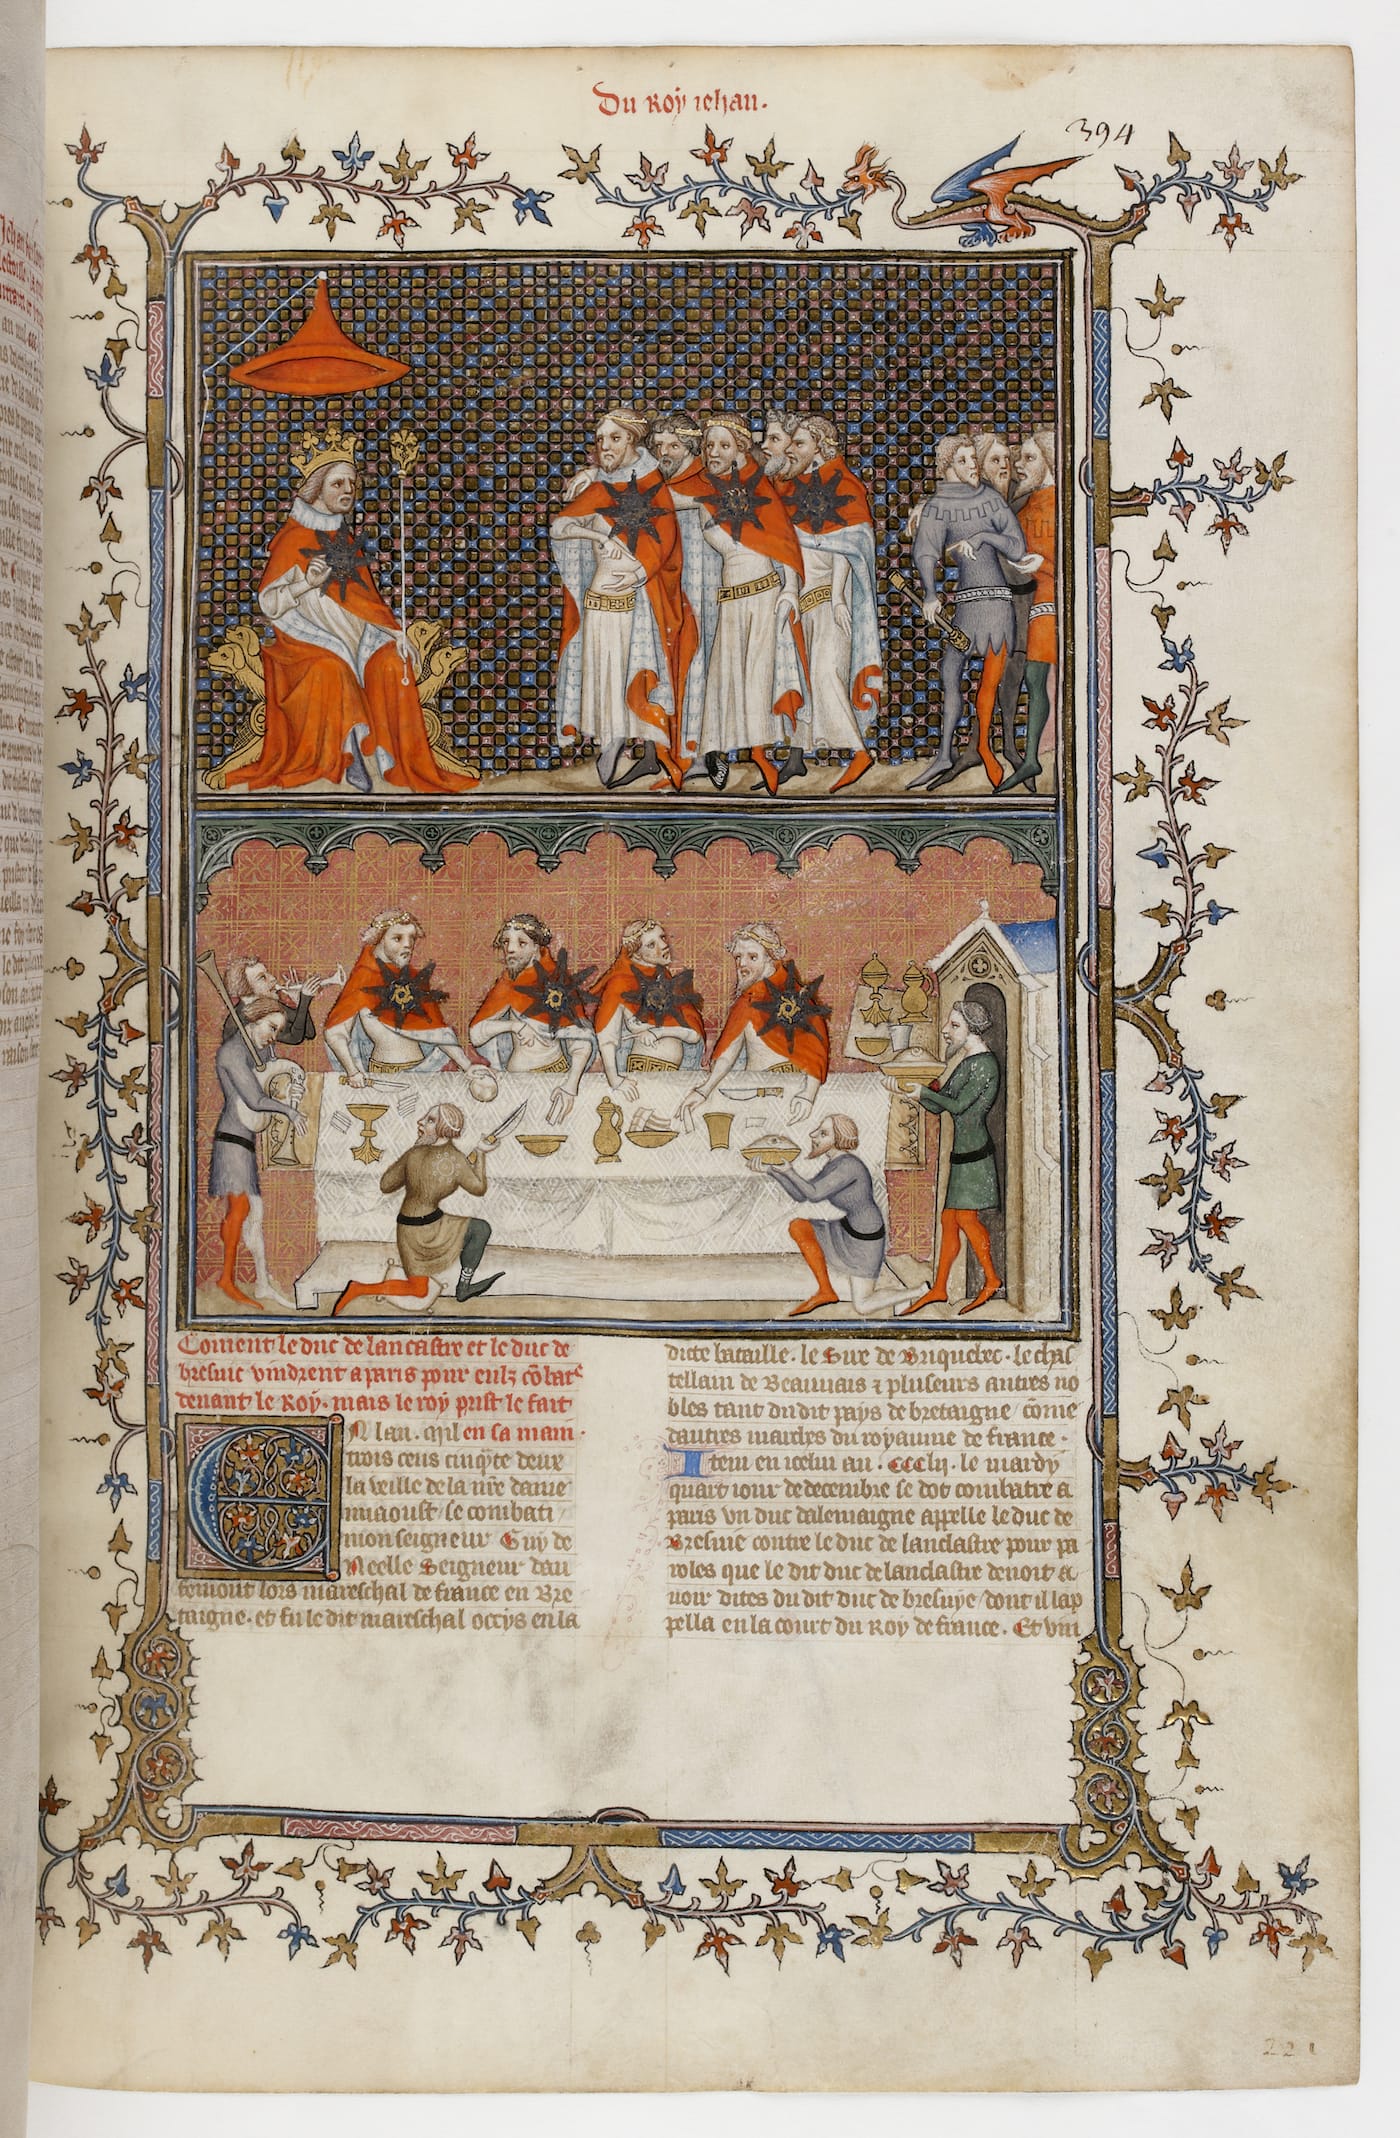 Du Roy Jehan.
394
Coment le duc de lancastre et le duc de
bresuic vindrent a paris pour eulz cōbatᵉ
devant le Roy. mais le roy prist le fait
en sa main.
EN lan. mil
trois cens cinqᵃte deux
la veille de la nr̄e dame
miaoust / se combati /
mon seigneur Guy de
Neelle Seigneur dau
femont lors mareschal de france en Bre
taigne. et fu le dit mareschal occys en la
dicte bataille. le Sire de Briquebec. le chas
tellain de Beauvais ⁊ pluseurs autres no
bles tant du dit pays de bretaigne / cōme
dautres marches du royaume de france.
Item en icelui an. CCClij. le mardy
quart iour de decembre se dot combatre a
paris un duc dalemaigne appelle le duc de
Bresuic contre le duc de lanclastre pour pa
roles que le dit duc de lanclastre devoit a
voir dites du dit duc de bresuyc / dont il lap
pella en la court du Roy de france. Et vin
221